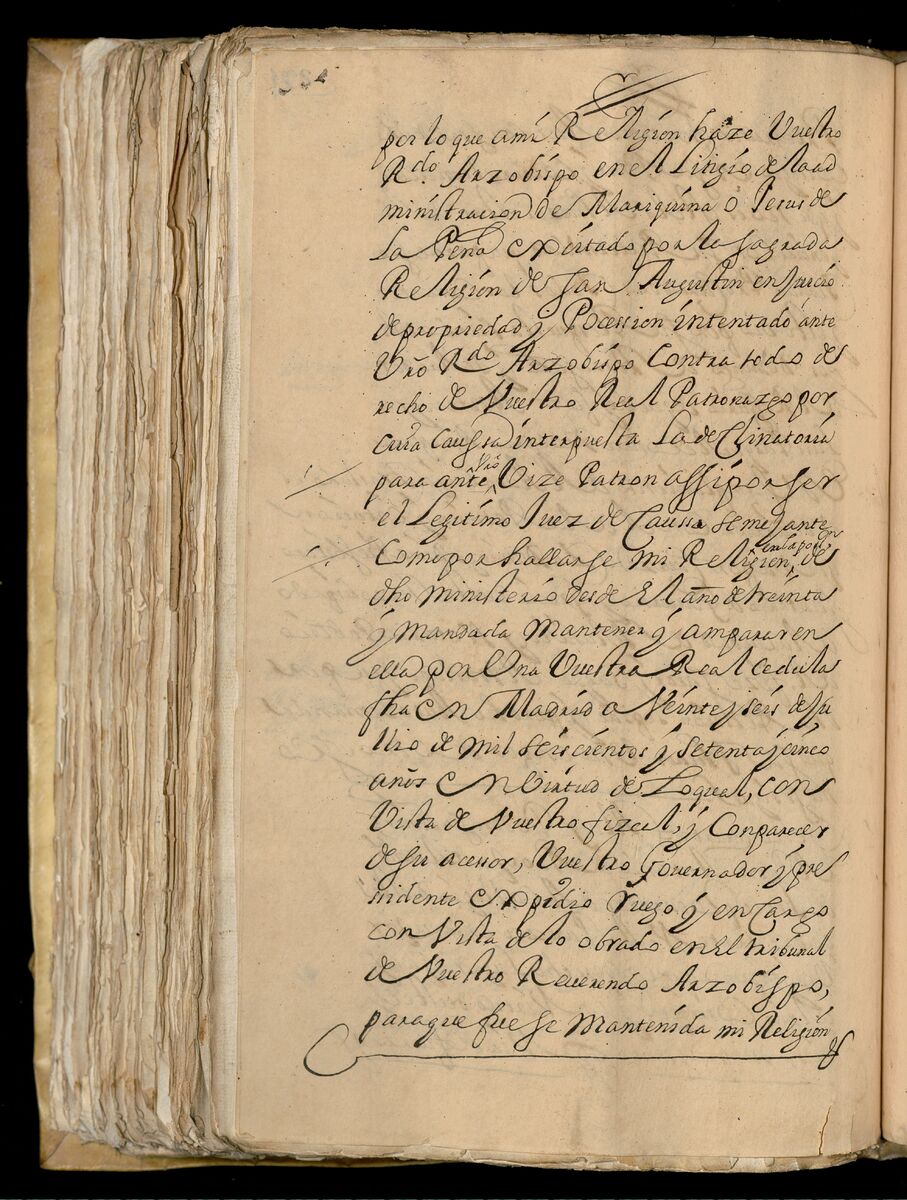 por lo que a mi Religion haze Vuestro
Rdo. Arzobispo en el Litigio de la ad
ministracion de Mariquina o Jesus de
La Peña exsitado por la sagrada
Religion de san Augustin en Juicio
de propriedad y Pocession intentado ante
Vro Rdo Arzobispo Contra todo de
recho de Vuestro Real Patronazgo por
cuia caussa interpuesta La declinatoria
para ante Vro Vize Patron assi por ser
el Legitimo Juez de Caussa semejante
Como por hallarse mi Religion en la poss.on de
dho ministerio desde El año de treinta
y Mandada Mantener y amparar en
ella por Una Vuestra Real cedula
fha en Madrid a Veinte y seis de Ju
llio de mil seiscientos y setenta y cinco
años en Virtud de Lo qual, con
Vista de Vuestro fizcal, y Con parecer
de su acessor, Vuestro Governador y pre
sidente expidio Ruego y encargo
con Vista de lo obrado en El tribunal
de Vuestro Reverendo Arzobispo,
para que fuese Mantenida mi Religion